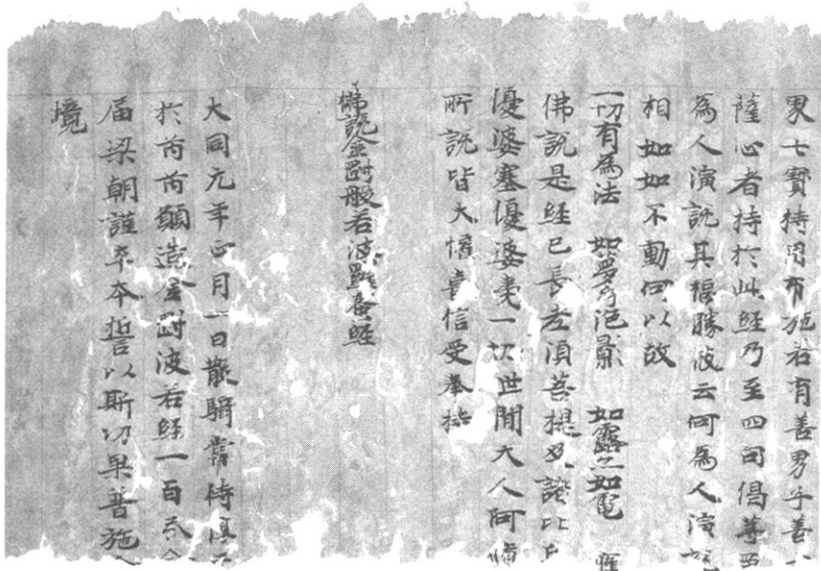 界七寶持用布施若有善男子善
薩心者持於此經乃至四句偈等受
為人演說其福勝彼云何為人演說
相如如不動何以故
一切有為法 如夢幻泡影 如露亦如電 應
佛說是經已長老須菩提及諸比丘
優婆塞優婆夷一切世間天人阿脩
所說皆大懽喜信受奉持
佛說金剛般若波羅蜜經
大同元年正月一日散騎常侍淳
於芮芮願造金剛波若經一百
屆梁朝謹卒本誓以斯功果普施
境